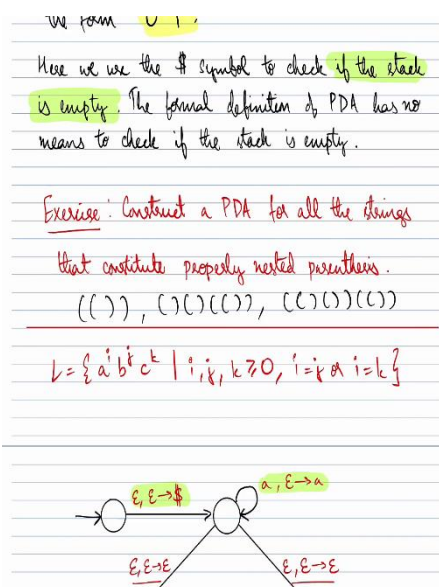 the form 0 1
Here we use the $ symbol to check if the stack
is empty. The formal definition of PDA has no
means to check if the stack is empty.
Exercise: Construct a PDA for all the strings
that constitute properly nested parenthesis.
(()), ()()(()), (()())(())
L = { aⁱ bʲ cᵏ | i, j, k ≥ 0, i=j or i=k }
ε, ε→$
a, ε→a
ε, ε→ε
ε, ε→ε